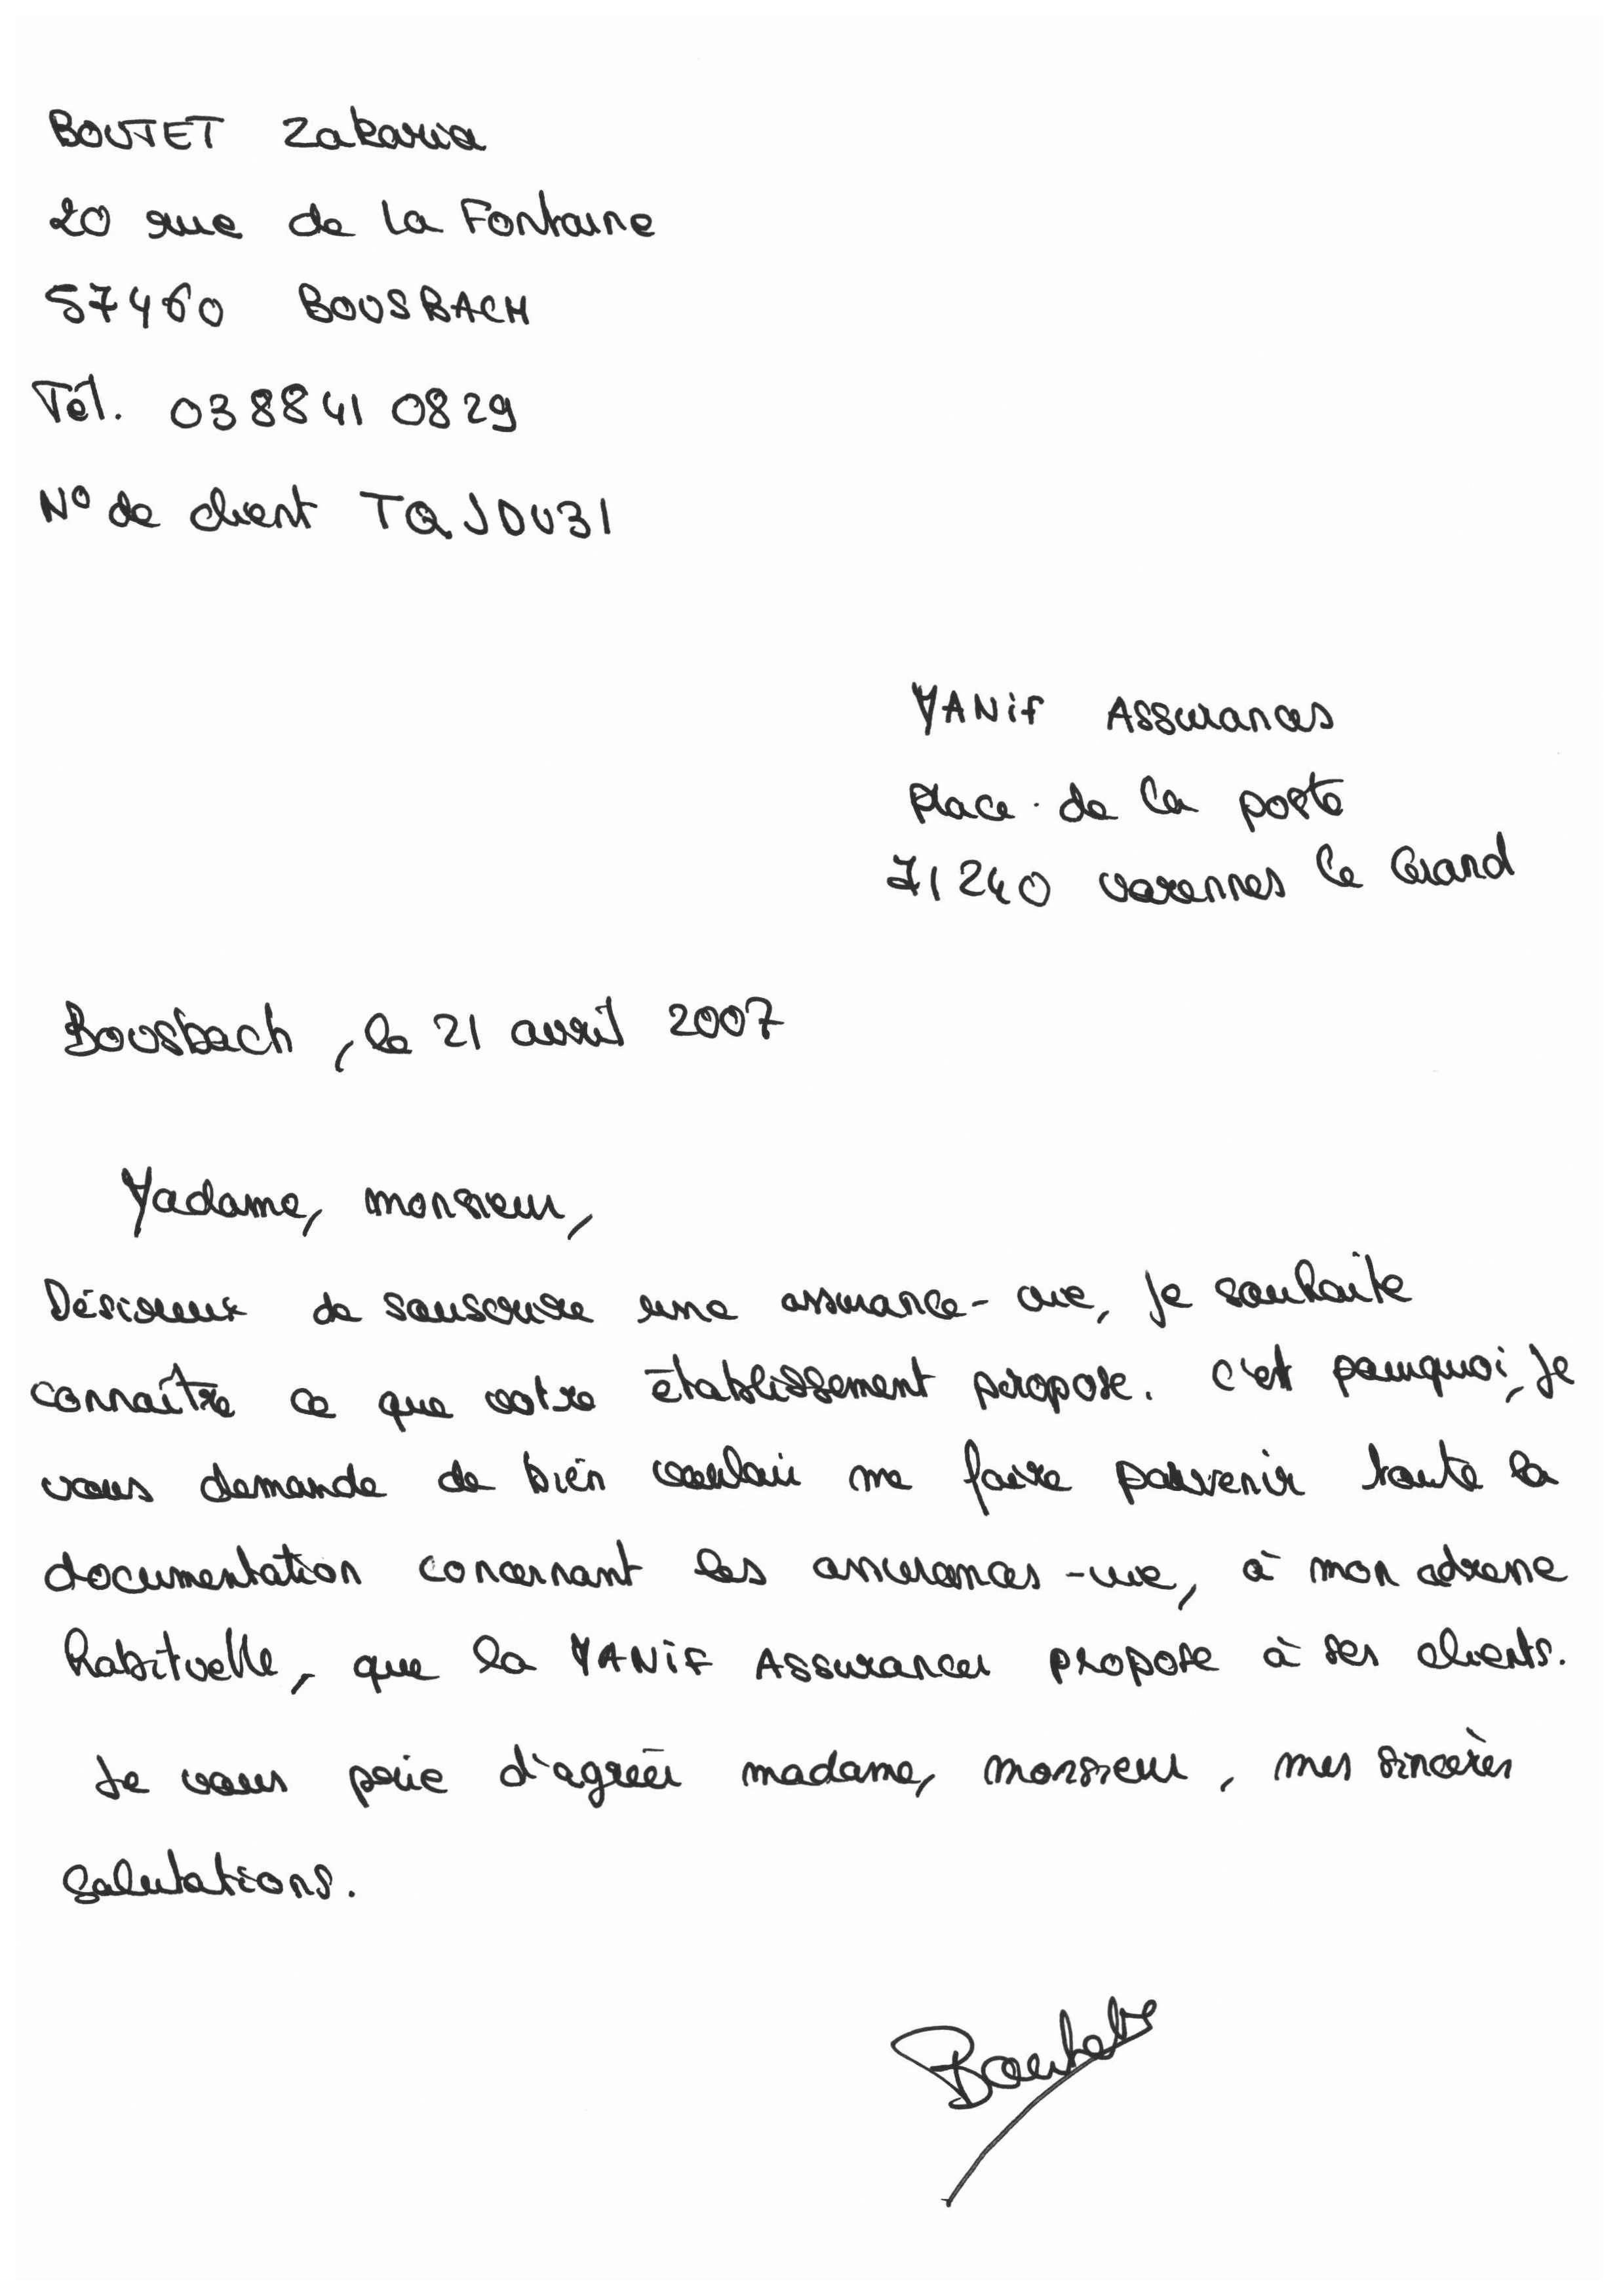 BOUTET Zakaria
20 rue de la Fontaine
57460 BOUSBACH
Tél. 03 88 41 08 29
N° de client TQJDU31
MANiF Assurances
place de la poste
71240 varennes le Grand
Bousbach, le 21 avril 2007
Madame, monsieur,
Désireux de souscrire une assurance-vie, je souhaite
connaître ce que votre établissement propose. c'est pourquoi, je
vous demande de bien vouloir me faire parvenir toute la
documentation concernant les assurances-vie, à mon adresse
habituelle, que la MANiF Assurances propose à ses clients.
Je vous prie d'agréer madame, monsieur, mes sincères
salutations.
Boutet